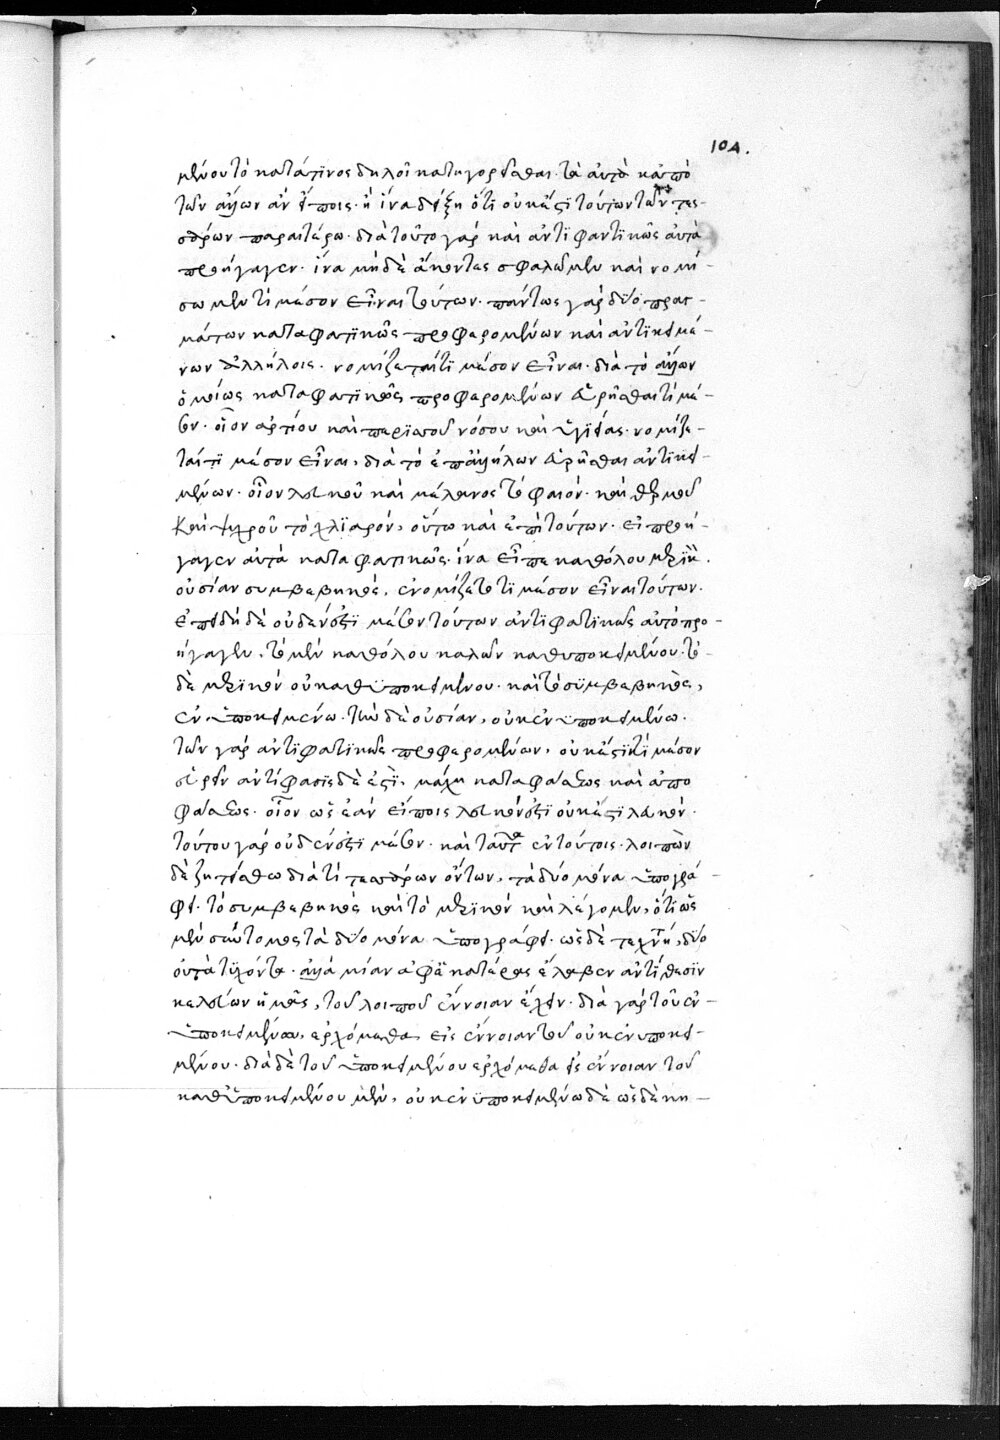 104.
μένου τὸ κατά τινος δηλοῖ κατηγορεῖσθαι. τὸ αὐτὸ κἀπὸ
τῶν ἄλλων ἂν εἴποις. ἢ ἵνα δείξῃ ὅτι οὐκ ἔστι τούτων τῶν τες-
σάρων παραιτέρω. διὰ τοῦτο γὰρ καὶ ἀντιφαντικῶς αὐτὰ
προήγαγεν. ἵνα μηδὲ ἄκοντας σφαλῶμεν καὶ νομί-
σωμεν τι μέσον εἶναι τούτων. πάντως γὰρ δύο πραγ-
μάτων καταφατικῶς προφερομένων καὶ ἀντικειμέ-
νων ἀλλήλοις. νομίζεταί τι μέσον εἶναι. διὰ τὸ ἄλλων
ὁμοίως καταφατικῶς προφερομένων εὑρῆσθαι τι μέ-
σον. οἷον ἀρτίου καὶ περιττοῦ νόσου καὶ ὑγείας. νομίζε-
ταί τι μέσον εἶναι, διὰ τὸ ἐπ' ἀλλήλων εὑρῆσθαι ἀντικει-
μένων. οἷον λευκοῦ καὶ μέλανος τὸ φαιόν. καὶ θερμοῦ
καὶ ψυχροῦ τὸ χλιαρόν, οὕτω καὶ ἐπὶ τούτων. εἰ προή-
γαγεν αὐτὰ καταφατικῶς. ἵνα εἴπε καθόλου μερικὴ.
οὐσίαν συμβεβηκός, ἐνομίζετό τι μέσον εἶναι τούτων.
ἐπειδὴ δὲ οὐδέν ἐστι μέσον τούτων ἀντιφατικῶς αὐτὸ προ-
ήγαγεν. τὸ μὲν καθόλου καλῶν καθυποκειμένου. τὸ
δὲ μερικὸν οὐ καθ' ὑποκειμένου. καὶ τὸ συμβεβηκὸς,
ἐν ὑποκειμένω. τὴν δὲ οὐσίαν, οὐκ ἐν ὑποκειμένω.
τῶν γὰρ ἀντιφατικῶς προφερομένων, οὐκ ἔστι τί μέσον
εὑρεῖν ἀντίφασις δὲ ἐστὶ, μάχη καταφάσεως καὶ ἀπο
φάσεως. οἷον ὡς ἐάν εἴποις λευκόν ἐστι οὐκ ἔστι λευκόν.
τούτου γὰρ οὐδέν ἐστι μέσον. καὶ ταῦτα ἐν τούτοις. λοιπὸν
δὲ ζητείσθω διὰ τί τεσσάρων ὄντων, τὰ δύο μόνα ὑπογρά
φει. τὸ συμβεβηκὸς καὶ τὸ μερικὸν καὶ λέγομεν, ὅτι ὡς
μὲν συντόμος τὰ δύο μόνα ὑπογράφει. ὡς δὲ τεχνη, δύο
οὐ κατὰ τυχόντα. ἀλλὰ μίαν ἀφ' ἑκατέρας ἔλαβεν ἀντίθεσιν
κελεύων ἡμᾶς, τοῦ λοιποῦ ἔννοιαν ἔχειν. διὰ γὰρ τοῦ ἐν
ὑποκειμένω, ἐρχόμεθα εἰς ἔννοιαν τοῦ οὐκ ἐν ὑποκει-
μένου. διὰ δὲ τοῦ ὑποκειμένου ἐρχόμεθα εἰς ἔννοιαν τοῦ
καθ' ὑποκειμένου μὲν, οὐκ ἐν ὑποκειμένω δὲ ὡς δὲ κη-